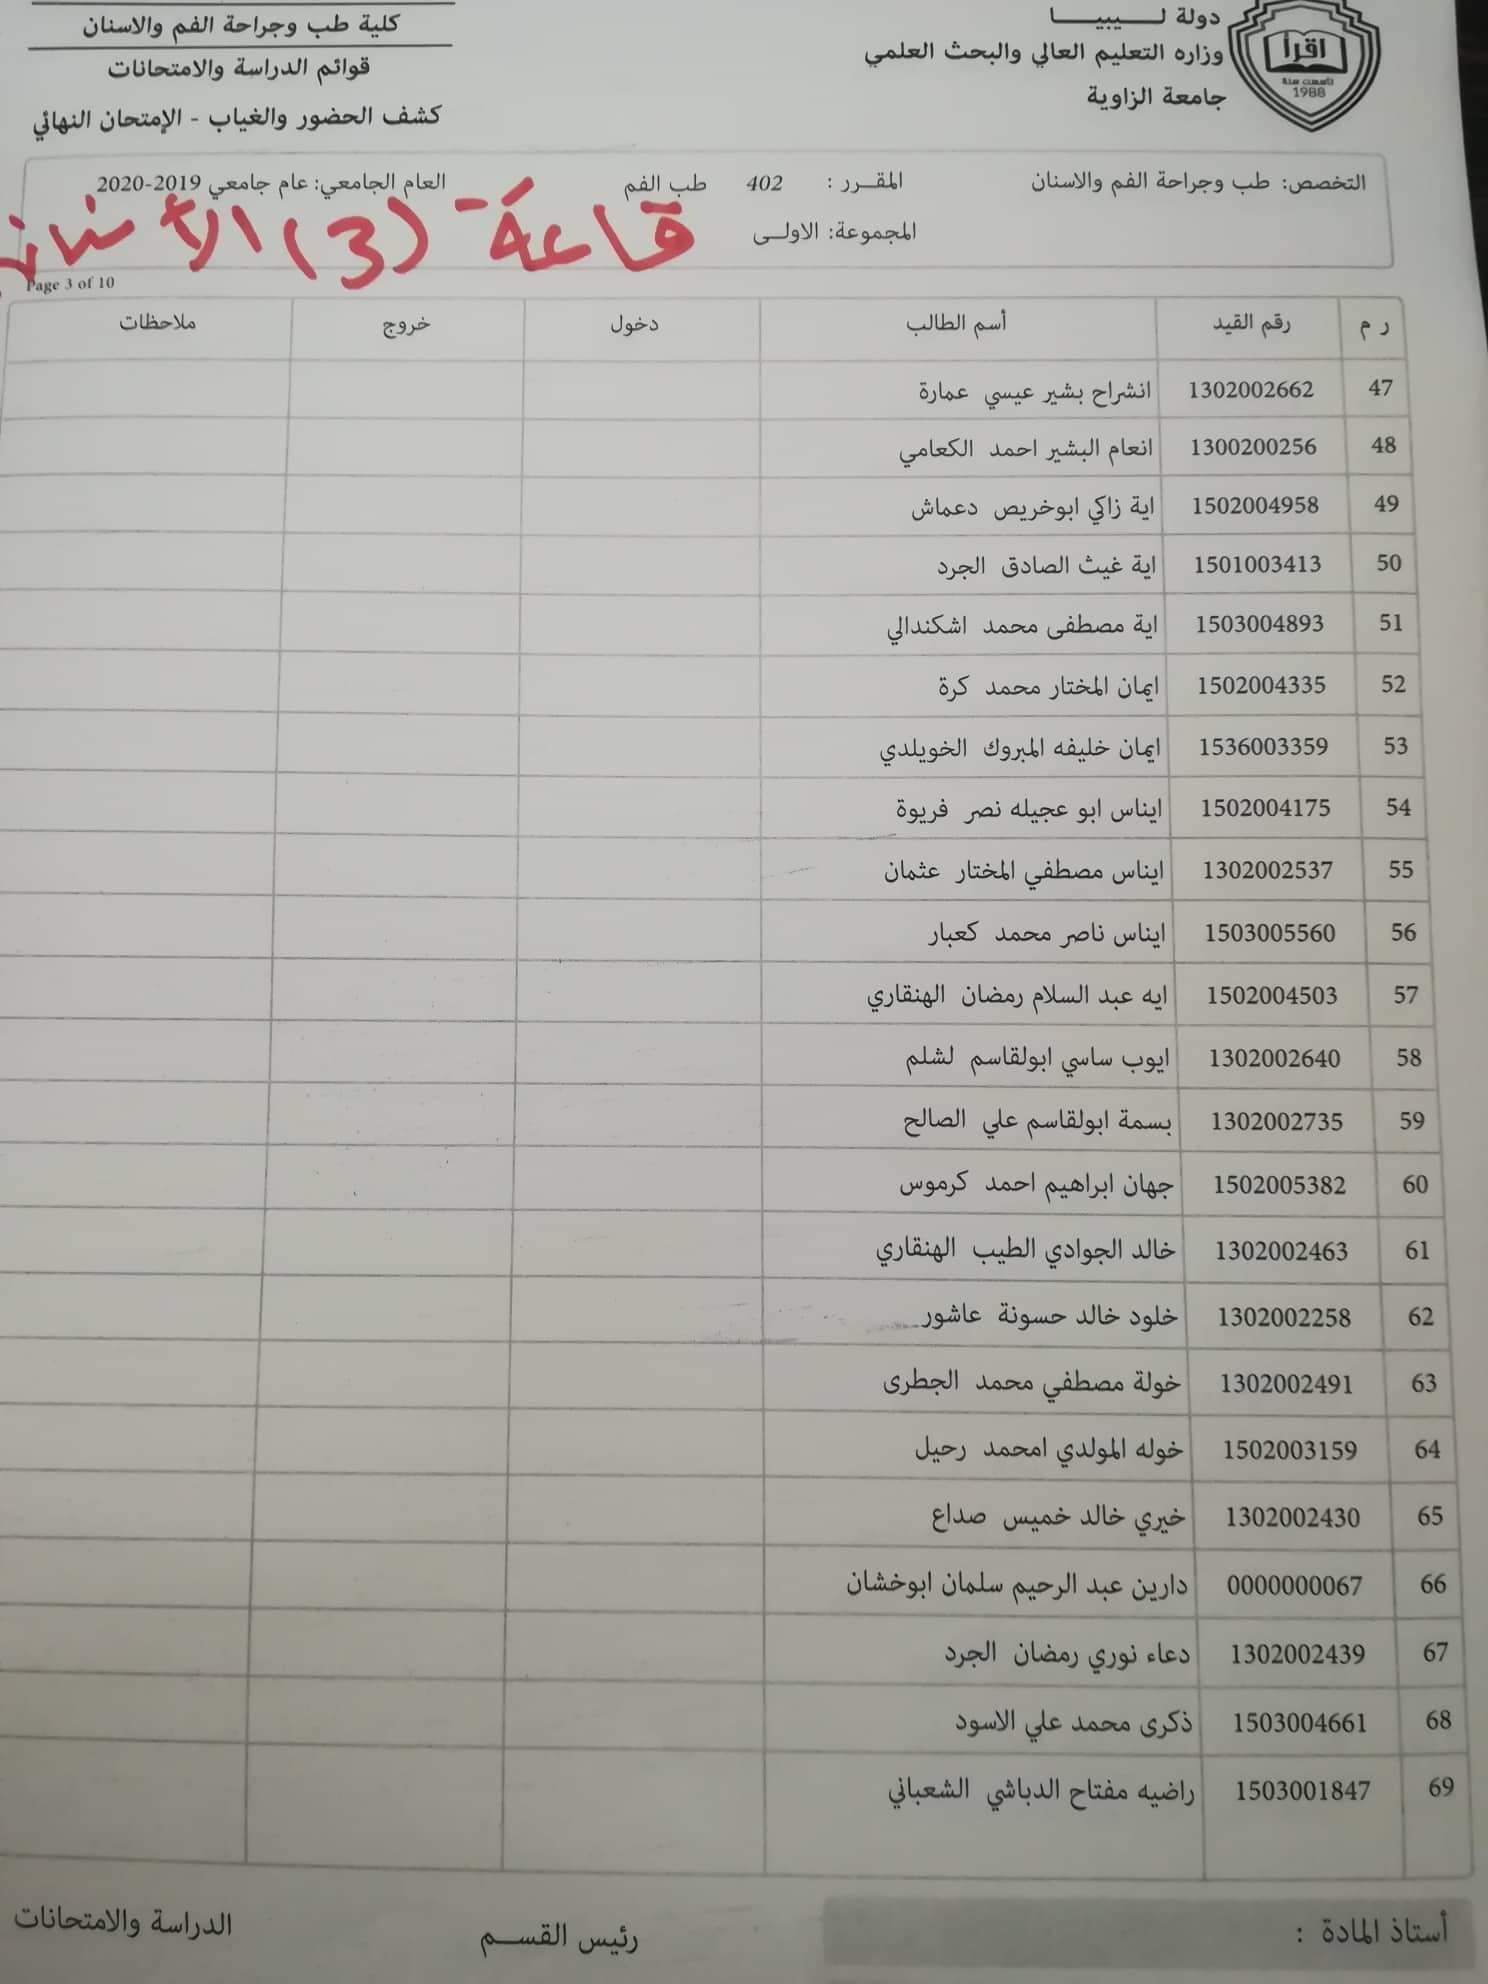 دولة لـــيبيـــا
وزاره التعليم العالي والبحث العلمي
جامعة الزاوية
اقرأ
تأسست سنة
1988
كلية طب وجراحة الفم والاسنان
قوائم الدراسة والامتحانات
كشف الحضور والغياب - الإمتحان النهائي
التخصص: طب وجراحة الفم والاسنان المقـرر : 402 طب الفم العام الجامعي: عام جامعي 2019-2020
المجموعة: الاولـى
قاعة (3) الأسنان
Page 3 of 10
ر م رقم القيد أسم الطالب دخول خروج ملاحظات
47 1302002662 انشراح بشير عيسي عمارة
48 1300200256 انعام البشير احمد الكعامي
49 1502004958 اية زاكي ابوخريص دعماش
50 1501003413 اية غيث الصادق الجرد
51 1503004893 اية مصطفى محمد اشكندالي
52 1502004335 ايمان المختار محمد كرة
53 1536003359 ايمان خليفه المبروك الخويلدي
54 1502004175 ايناس ابو عجيله نصر فريوة
55 1302002537 ايناس مصطفي المختار عثمان
56 1503005560 ايناس ناصر محمد كعبار
57 1502004503 ايه عبد السلام رمضان الهنقاري
58 1302002640 ايوب ساسي ابولقاسم لشلم
59 1302002735 بسمة ابولقاسم علي الصالح
60 1502005382 جهان ابراهيم احمد كرموس
61 1302002463 خالد الجوادي الطيب الهنقاري
62 1302002258 خلود خالد حسونة عاشور
63 1302002491 خولة مصطفي محمد الجطرى
64 1502003159 خوله المولدي امحمد رحيل
65 1302002430 خيري خالد خميس صداع
66 0000000067 دارين عبد الرحيم سلمان ابوخشان
67 1302002439 دعاء نوري رمضان الجرد
68 1503004661 ذكرى محمد علي الاسود
69 1503001847 راضيه مفتاح الدباشي الشعباني
أستاذ المادة : رئيس القســم الدراسة والامتحانات